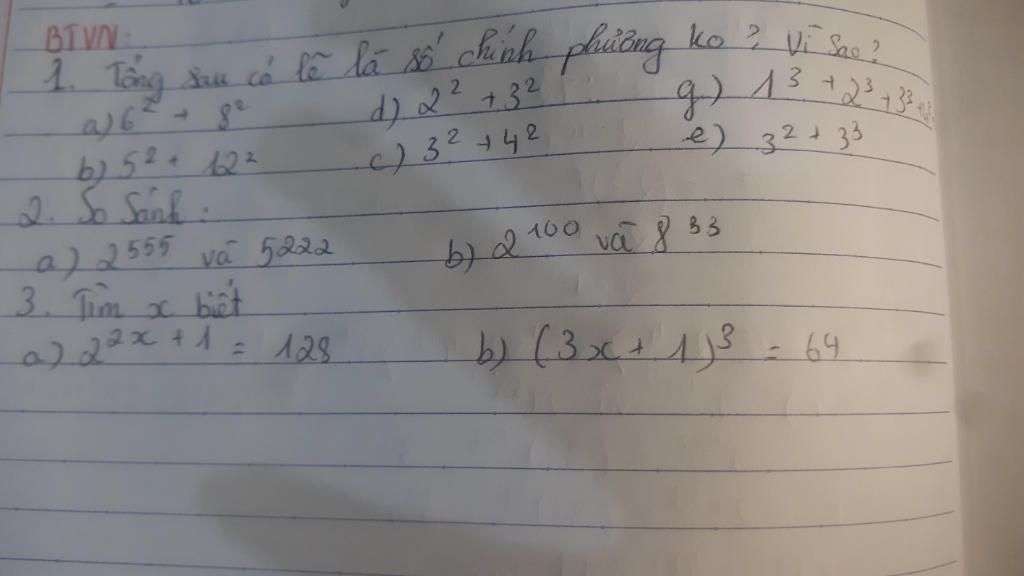 BTVN:
1. Tổng sau có lẽ là số chính phương ko? Vì sao?
a) 6² + 8² d) 2² + 3² g.) 1³ + 2³ + 3³
b) 5² + 12² c) 3² + 4² e) 3² + 3³
2. So Sánh:
a) 2⁵⁵⁵ và 5²²² b) 2¹⁰⁰ và 8³³
3. Tìm x biết
a) 2²ˣ⁺¹ = 128 b) (3x + 1)³ = 64